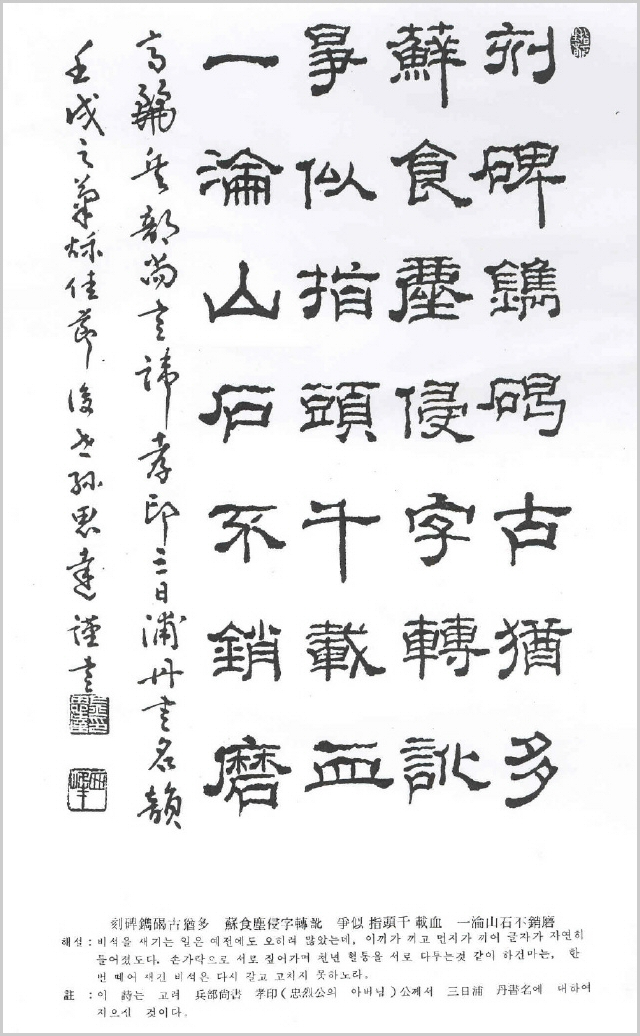 刻碑鐫碣古猶多
蘚食塵侵字轉訛
爭似指頭千載血
一淪山石不銷磨
高麗兵部尚書諱孝印三日浦丹書名韻
壬戌之菊秋佳節後世孫思達謹書
刻碑鐫碣古猶多 蘇食塵侵字轉訛 爭似指頭千載血 一淪山石不銷磨
해설 : 비석을 새기는 일은 예전에도 오히려 많았는데, 이끼가 끼고 먼지가 끼어 글자가 자연히
들어졌도다. 손가락으로 서로 짚어가며 천년 혈통을 서로 다투는것 같이 하건마는, 한
번 떼어 새긴 비석은 다시 갈고 고치지 못하노라.
註 : 이 詩는 고려 兵部尙書 孝印(忠烈公의 아버님)公께서 三日浦 丹書名에 대하여
지으신 것이다.